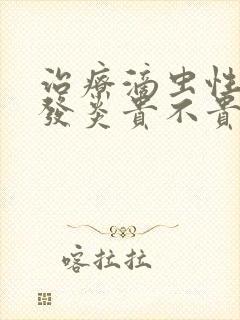 治療滴虫性
發炎貴不貴
喀拉拉